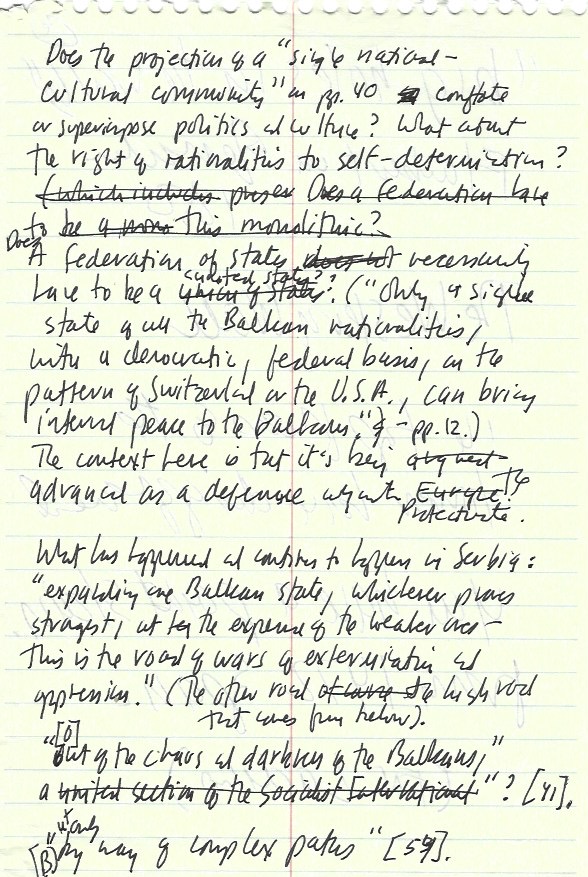 Does the projection of a "single national-
cultural community" on pp. 40 conflate
or superimpose politics and culture? What about
the right of nationalities to self-determination?
(which includes Does a Federation have
to be a this monolithic?
Does
A federation of states does not necessarily
have to be a union of states united states?? ("Only a single
state of all the Balkan nationalities,
with a democratic, federal basis, on the
pattern of Switzerland or the U.S.A., can bring
internal peace to the Balkans." - pp. 12.)
The context here is that it's being argued
advanced as a defensive Europe! The
Protectorate.
What has happened and continues to happen in Serbia:
"expanding one Balkan state, whichever proves
strongest, at the expense of the weaker ones-
this is the road of wars of extermination and
oppression." (The other road of the high road
that comes from below).
"[O]ut of the chaos and darkness of the Balkans,"
a united section of the Socialist International"? [41].
"only
[B]y way of complex paths" [59].